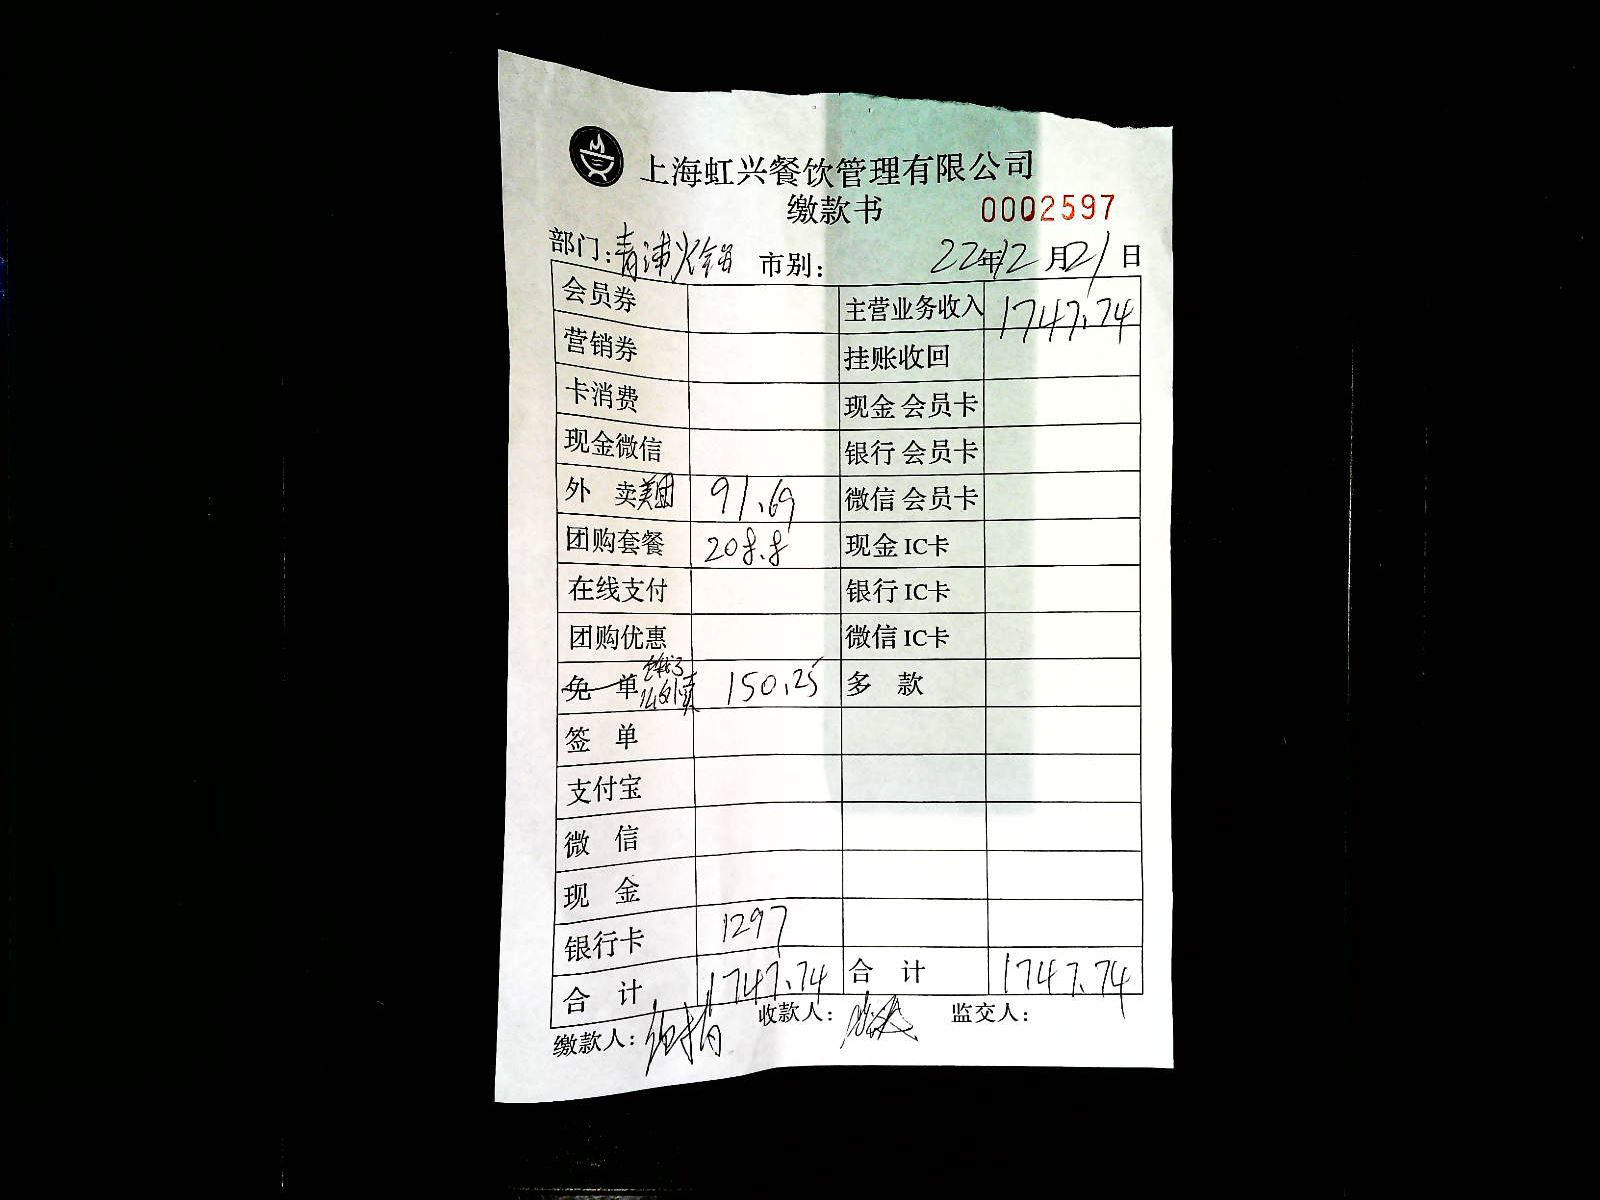 上海虹兴餐饮管理有限公司
缴款书 0002597
部门:青浦火锅 市别: 22年12月21日
会员券 主营业务收入 1747.74
营销券 挂账收回
卡消费 现金 会员卡
现金微信 银行 会员卡
外 卖美团 91.69 微信 会员卡
团购套餐 208.8 现金 IC卡
在线支付 银行 IC卡
团购优惠 微信 IC卡
饿了
免 单 外卖 150.25 多 款
签 单
支付宝
微 信
现 金
银行卡 1297
合 计 1747.74 合 计 1747.74
缴款人: 收款人: 监交人: